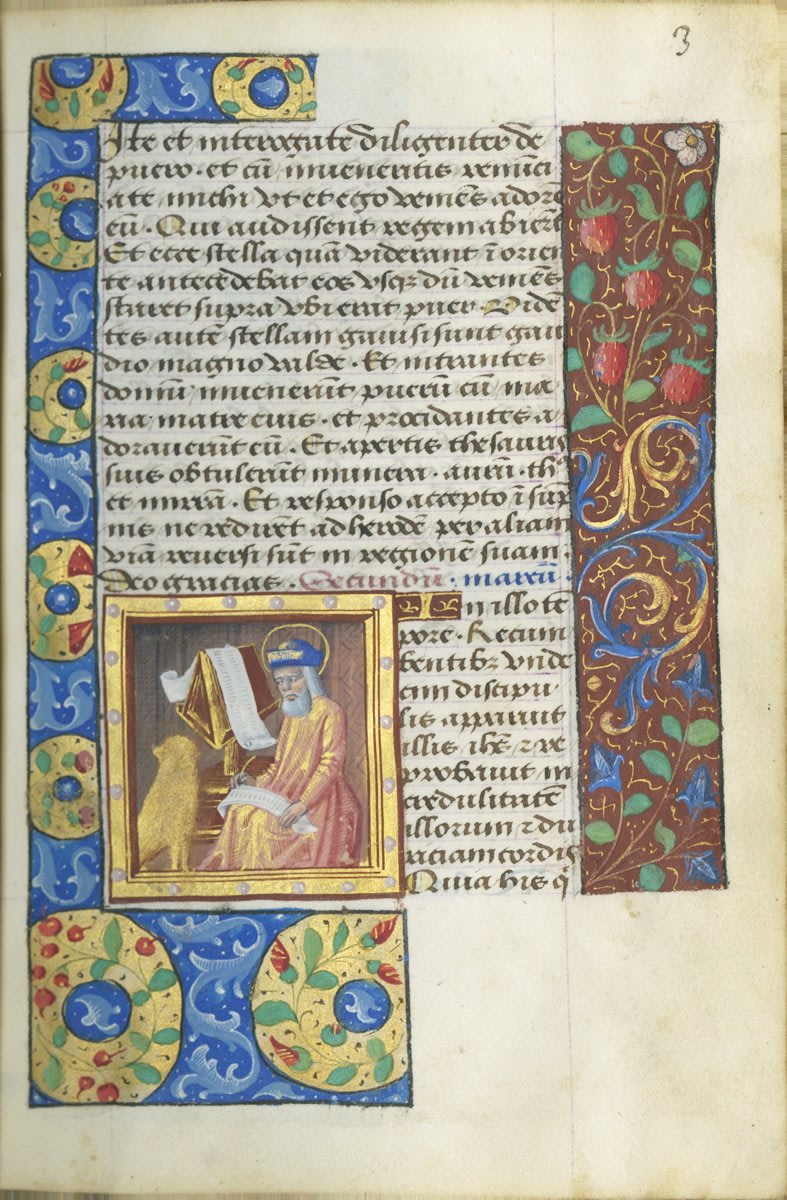 3
Ite et interrogate diligenter de
puero · et cū inueneritis renūci
ate michi vt et ego veniēs adorē
eū · Qui audissent regem abierūt
Et ecce stella quā viderant ī orien
te antecedebat eos vsqꝫ dū veniēs
staret supra vbi erat puer · Vidē
tes autē stellam gauisi sunt gau
dio magno valde · Et intrantes
domū inuenerūt puerū cū ma
ria matre eius · et procidentes a
dorauerūt eū · Et apertis thesauris
suis obtulerūt munera · aurū · thꝰ
et mirrā · Et responso accepto ī sōp
nis ne redirēt ad herodē per aliam
viā reuersi sūt in regionē suam ·
Deo gracias · Secundū · marcū ·
In illo tē
pore · Recum
bentibꝫ vnde
cim discipu
lis apparuit
illis ih̄s ⁊ ex
probauit in
credulitatē
illorum ⁊ du
riciam cordis
Quia his q̄